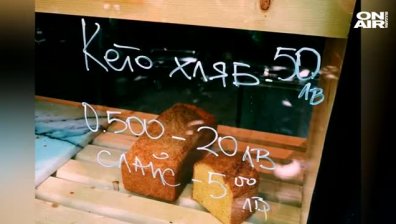 ON
AIR
Кето хляб - 50 лв
0.500 - 20 лв
слайс - 5.00 лв